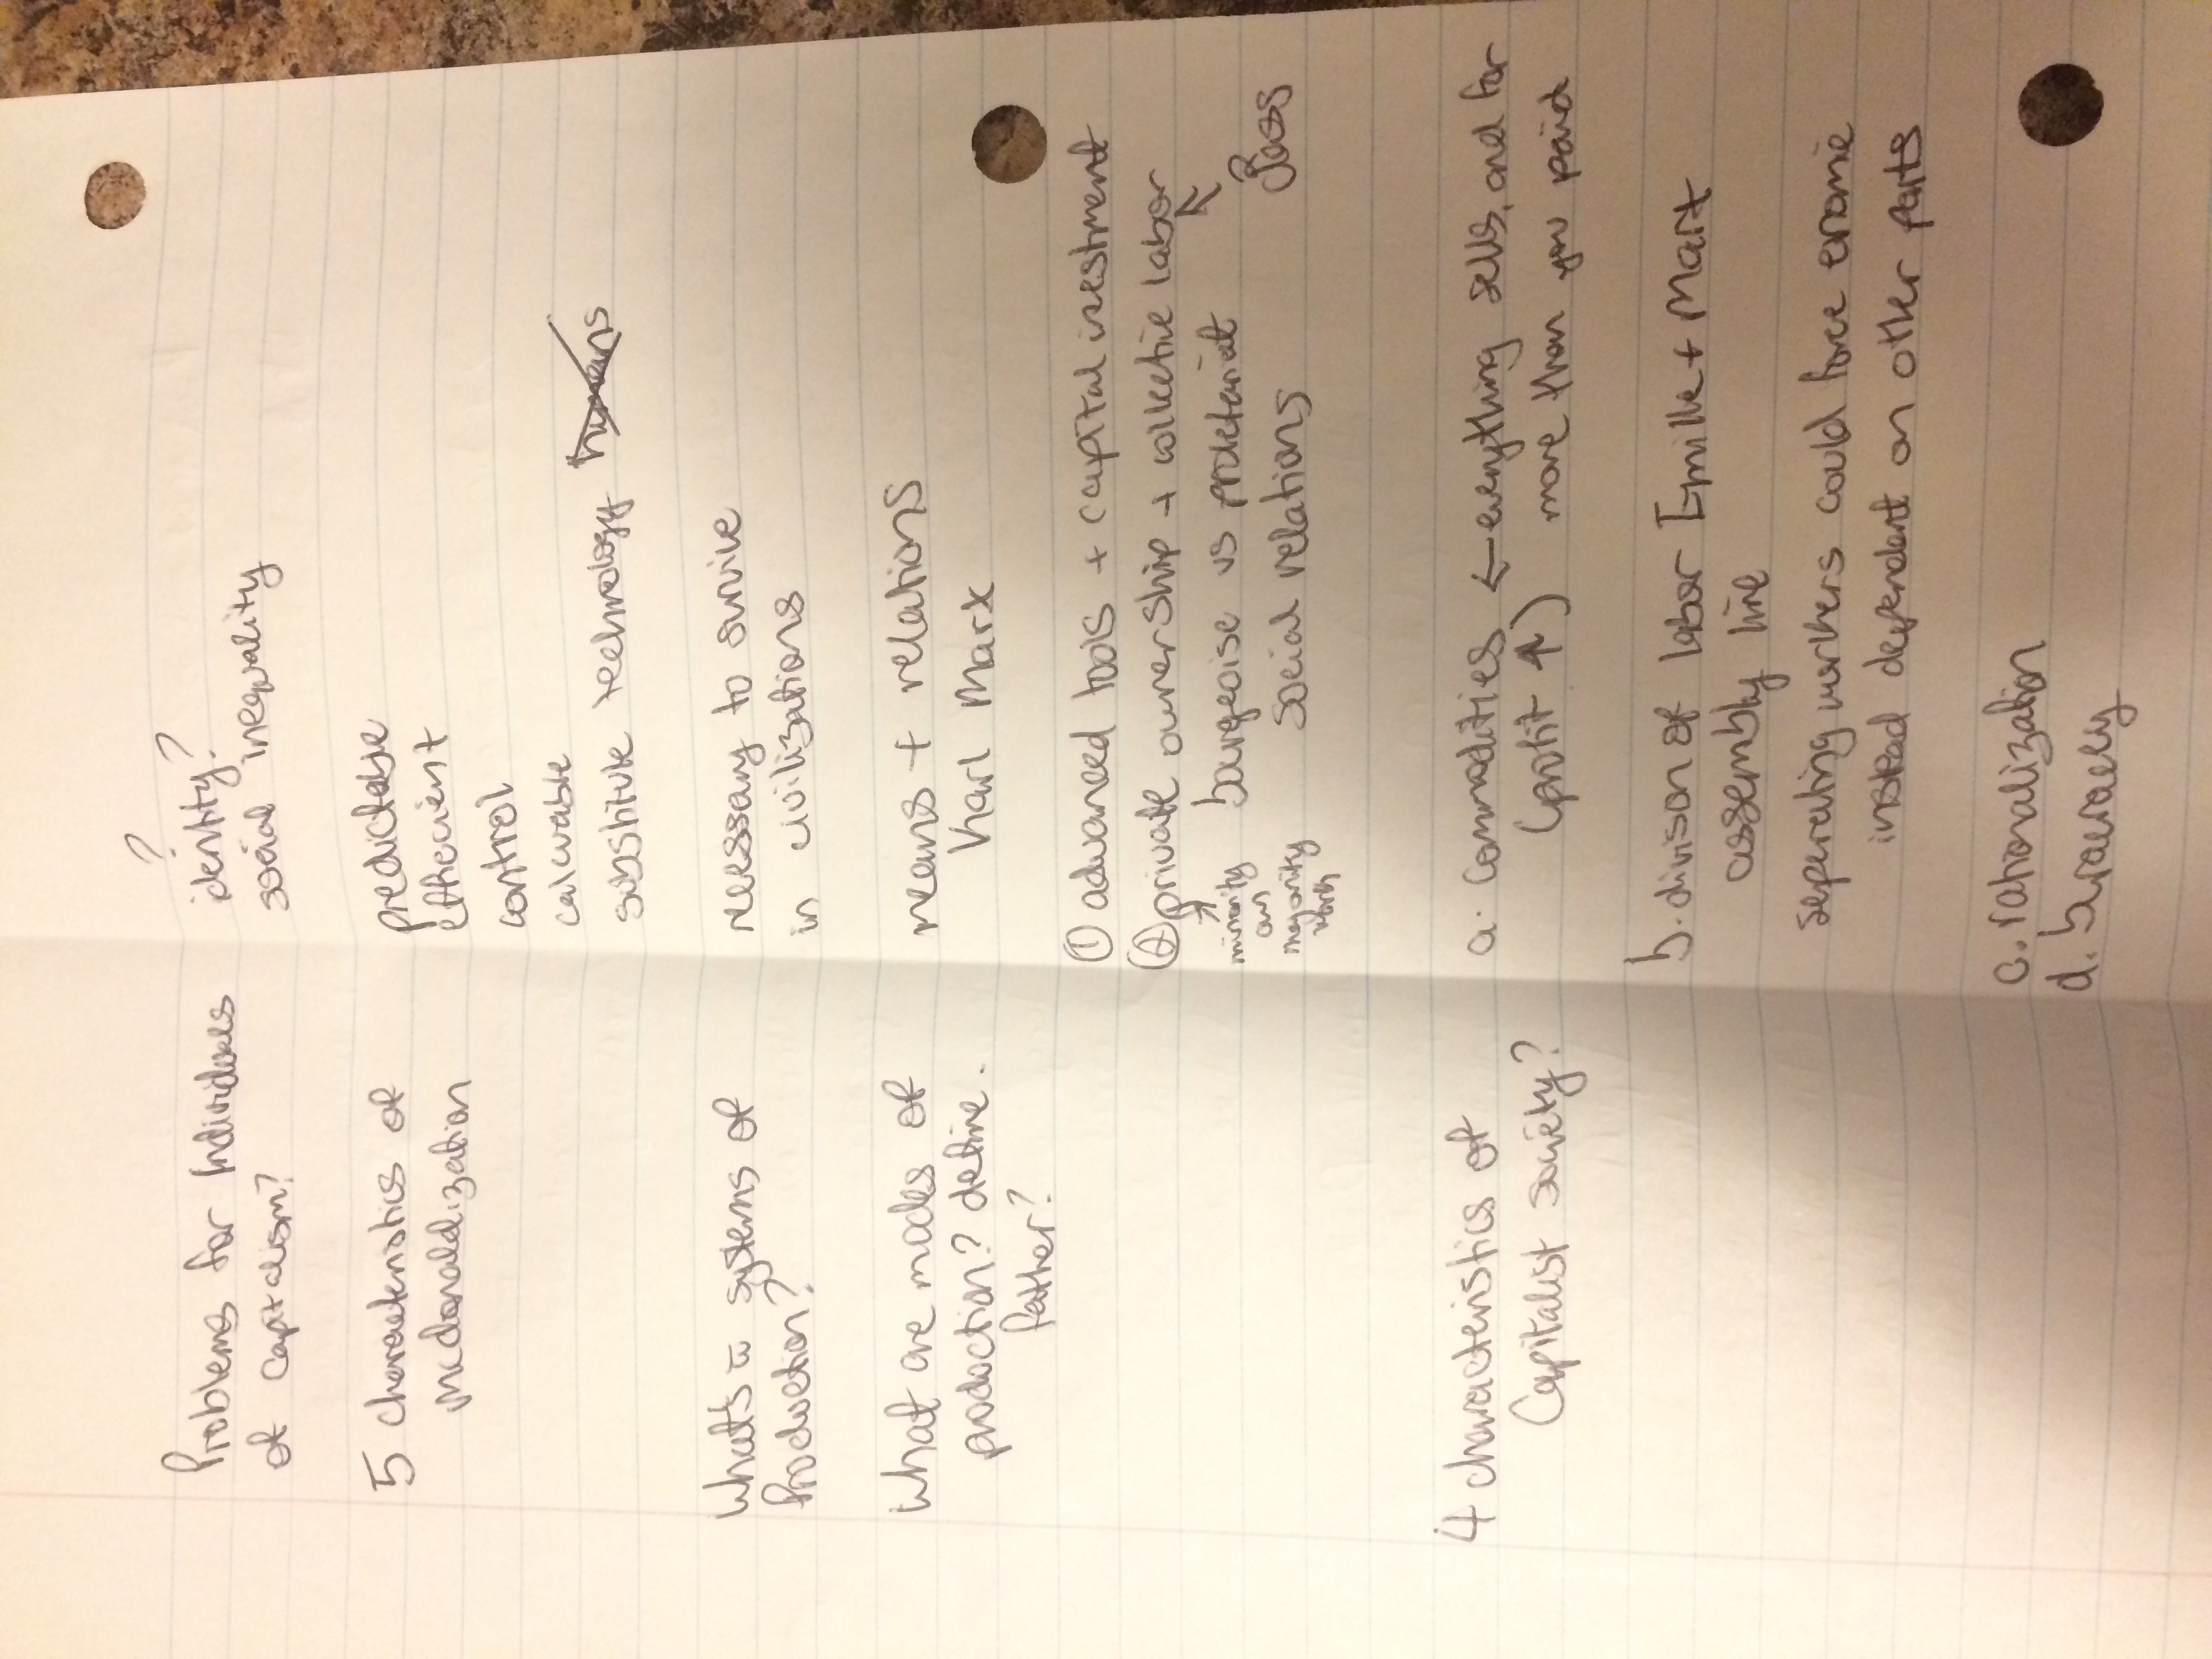 ?
Problems for Individuals identity?
of capitalism? social inequality
5 characteristics of predictable
mcdonaldization effiecient
control
calcuable
substitute technology humans
What's a systems of necessary to survive
Production? in civilizations
What are modes of means + relations
production? define. Karl Marx
Father?
① advanced tools + capital investment
② private ownership + collective labor
minority own majority work
bourgeoise vs proletariat
social relations Boss
4 characteristics of a. commodities ← everything sells, and for
Capitalist society? (profit ↑) more than you paid
b. division of labor Emille + Marx
assembly line
seperating workers could have enomie
instead dependent on other parts
c. rationalization
d. buraracy